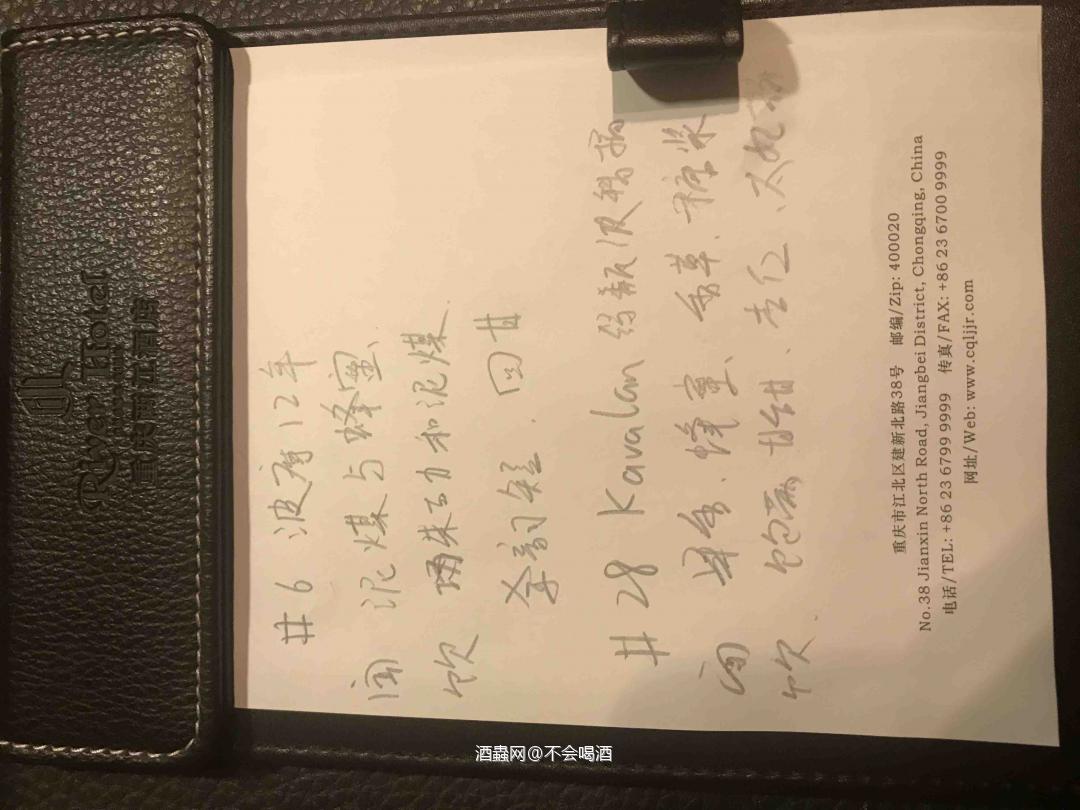 River Hotel
重庆两江酒店
#6 波摩12年
闻 泥煤与蜂蜜、
饮 巧克力和泥煤.
余韵短. 回甘
#28 Kavalan 波本桶
闻 果香、蜂蜜、香草、糖浆
饮. 饱满 甘甜、
重庆市江北区建新北路38号 邮编/Zip: 400020
No.38 Jianxin North Road, Jiangbei District, Chongqing, China
电话/TEL: +86 23 6799 9999 传真/FAX: +86 23 6700 9999
网址/Web: www.cqljjr.com
酒蟲网@不会喝酒